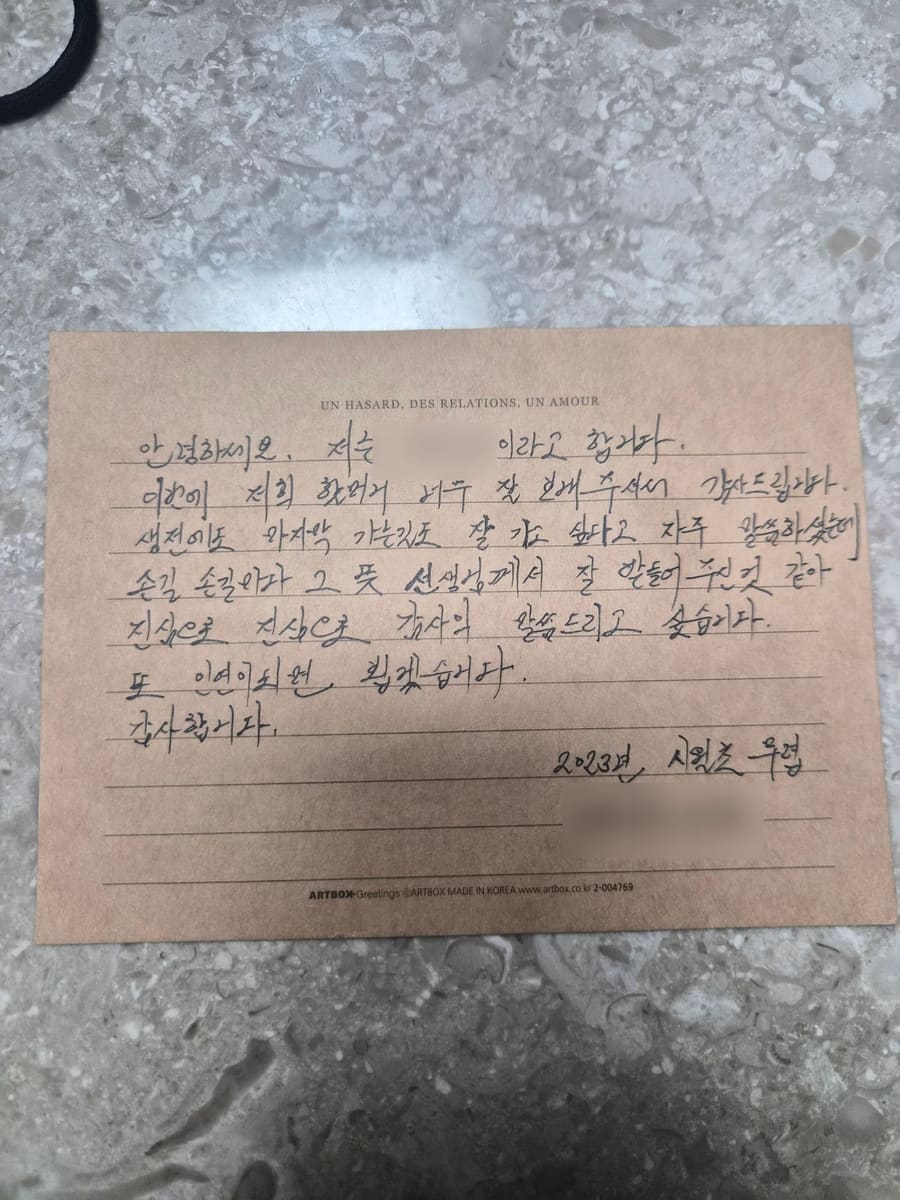 UN HASARD, DES RELATIONS, UN AMOUR
안녕하세요. 저는 이라고 합니다.
이번에 저희 할머니 너무 잘 보내주셔서 감사드립니다.
생전에도 마지막 가는길도 잘 가고 싶다고 자주 말씀하셨는데
손길 손길마다 그 뜻 선생님께서 잘 받들어 주신것 같아
진심으로 진심으로 감사의 말씀드리고 싶습니다.
또 인연이되면 뵙겠습니다.
감사합니다.
2023년 시월초 무렵
ARTBOX Greetings ⓒARTBOX MADE IN KOREA www.artbox.co.kr 2-004769